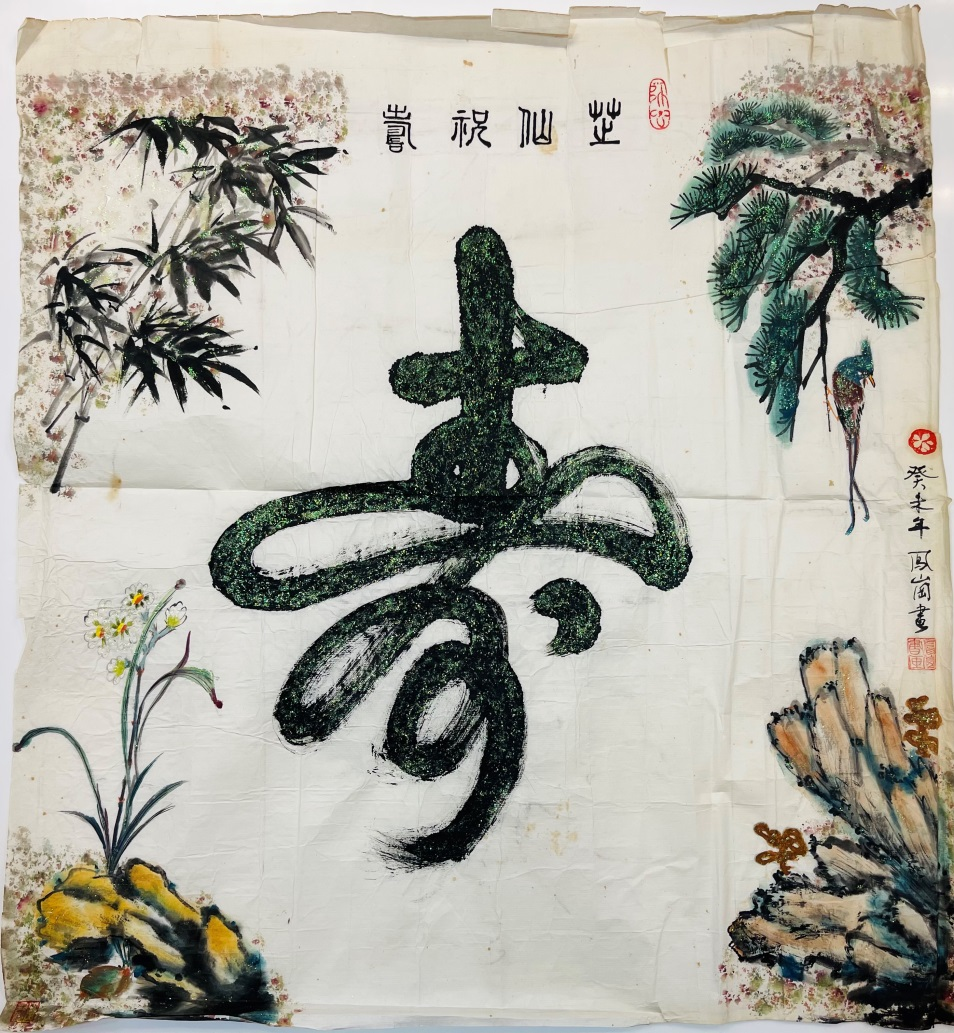 芝仙祝壽
壽
癸未年 鳳崗畫